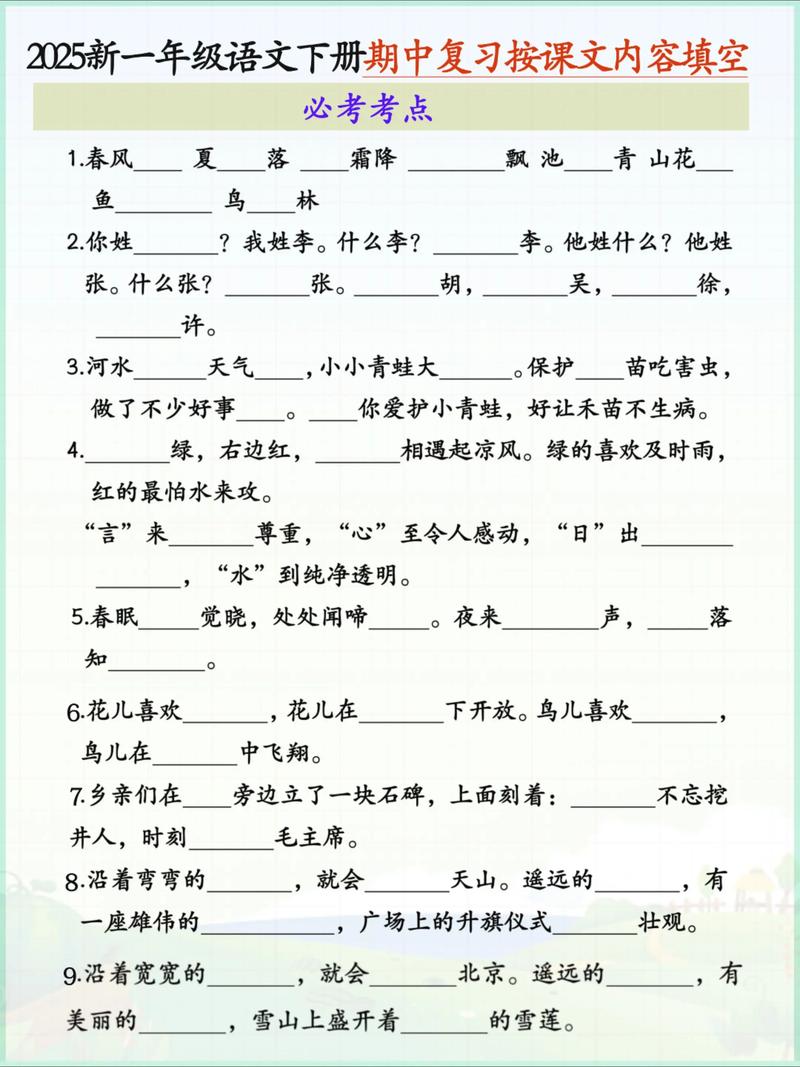 2025新一年级语文下册期中复习按课文内容填空
必考考点
1.春风____ 夏____落 ____霜降 ________飘 池____青 山花___
鱼________ 鸟____林
2.你姓_______？我姓李。什么李？_______李。他姓什么？他姓
张。什么张？_______张。_______胡，_______吴，_______徐，
_______许。
3.河水______天气____，小小青蛙大______。保护____苗吃害虫，
做了不少好事____。____你爱护小青蛙，好让禾苗不生病。
4._______绿，右边红，_______相遇起凉风。绿的喜欢及时雨，
红的最怕水来攻。
“言”来_______尊重，“心”至令人感动，“日”出_______
_______，“水”到纯净透明。
5.春眠_____觉晓，处处闻啼_____。夜来________声，_____落
知________。
6.花儿喜欢_______，花儿在_______下开放。鸟儿喜欢_______，
鸟儿在_______中飞翔。
7.乡亲们在____旁边立了一块石碑，上面刻着：_______不忘挖
井人，时刻_______毛主席。
8.沿着弯弯的_______，就会_______天山。遥远的_______，有
一座雄伟的___________，广场上的升旗仪式_______壮观。
9.沿着宽宽的_______，就会_______北京。遥远的_______，有
美丽的_______，雪山上盛开着_______的雪莲。